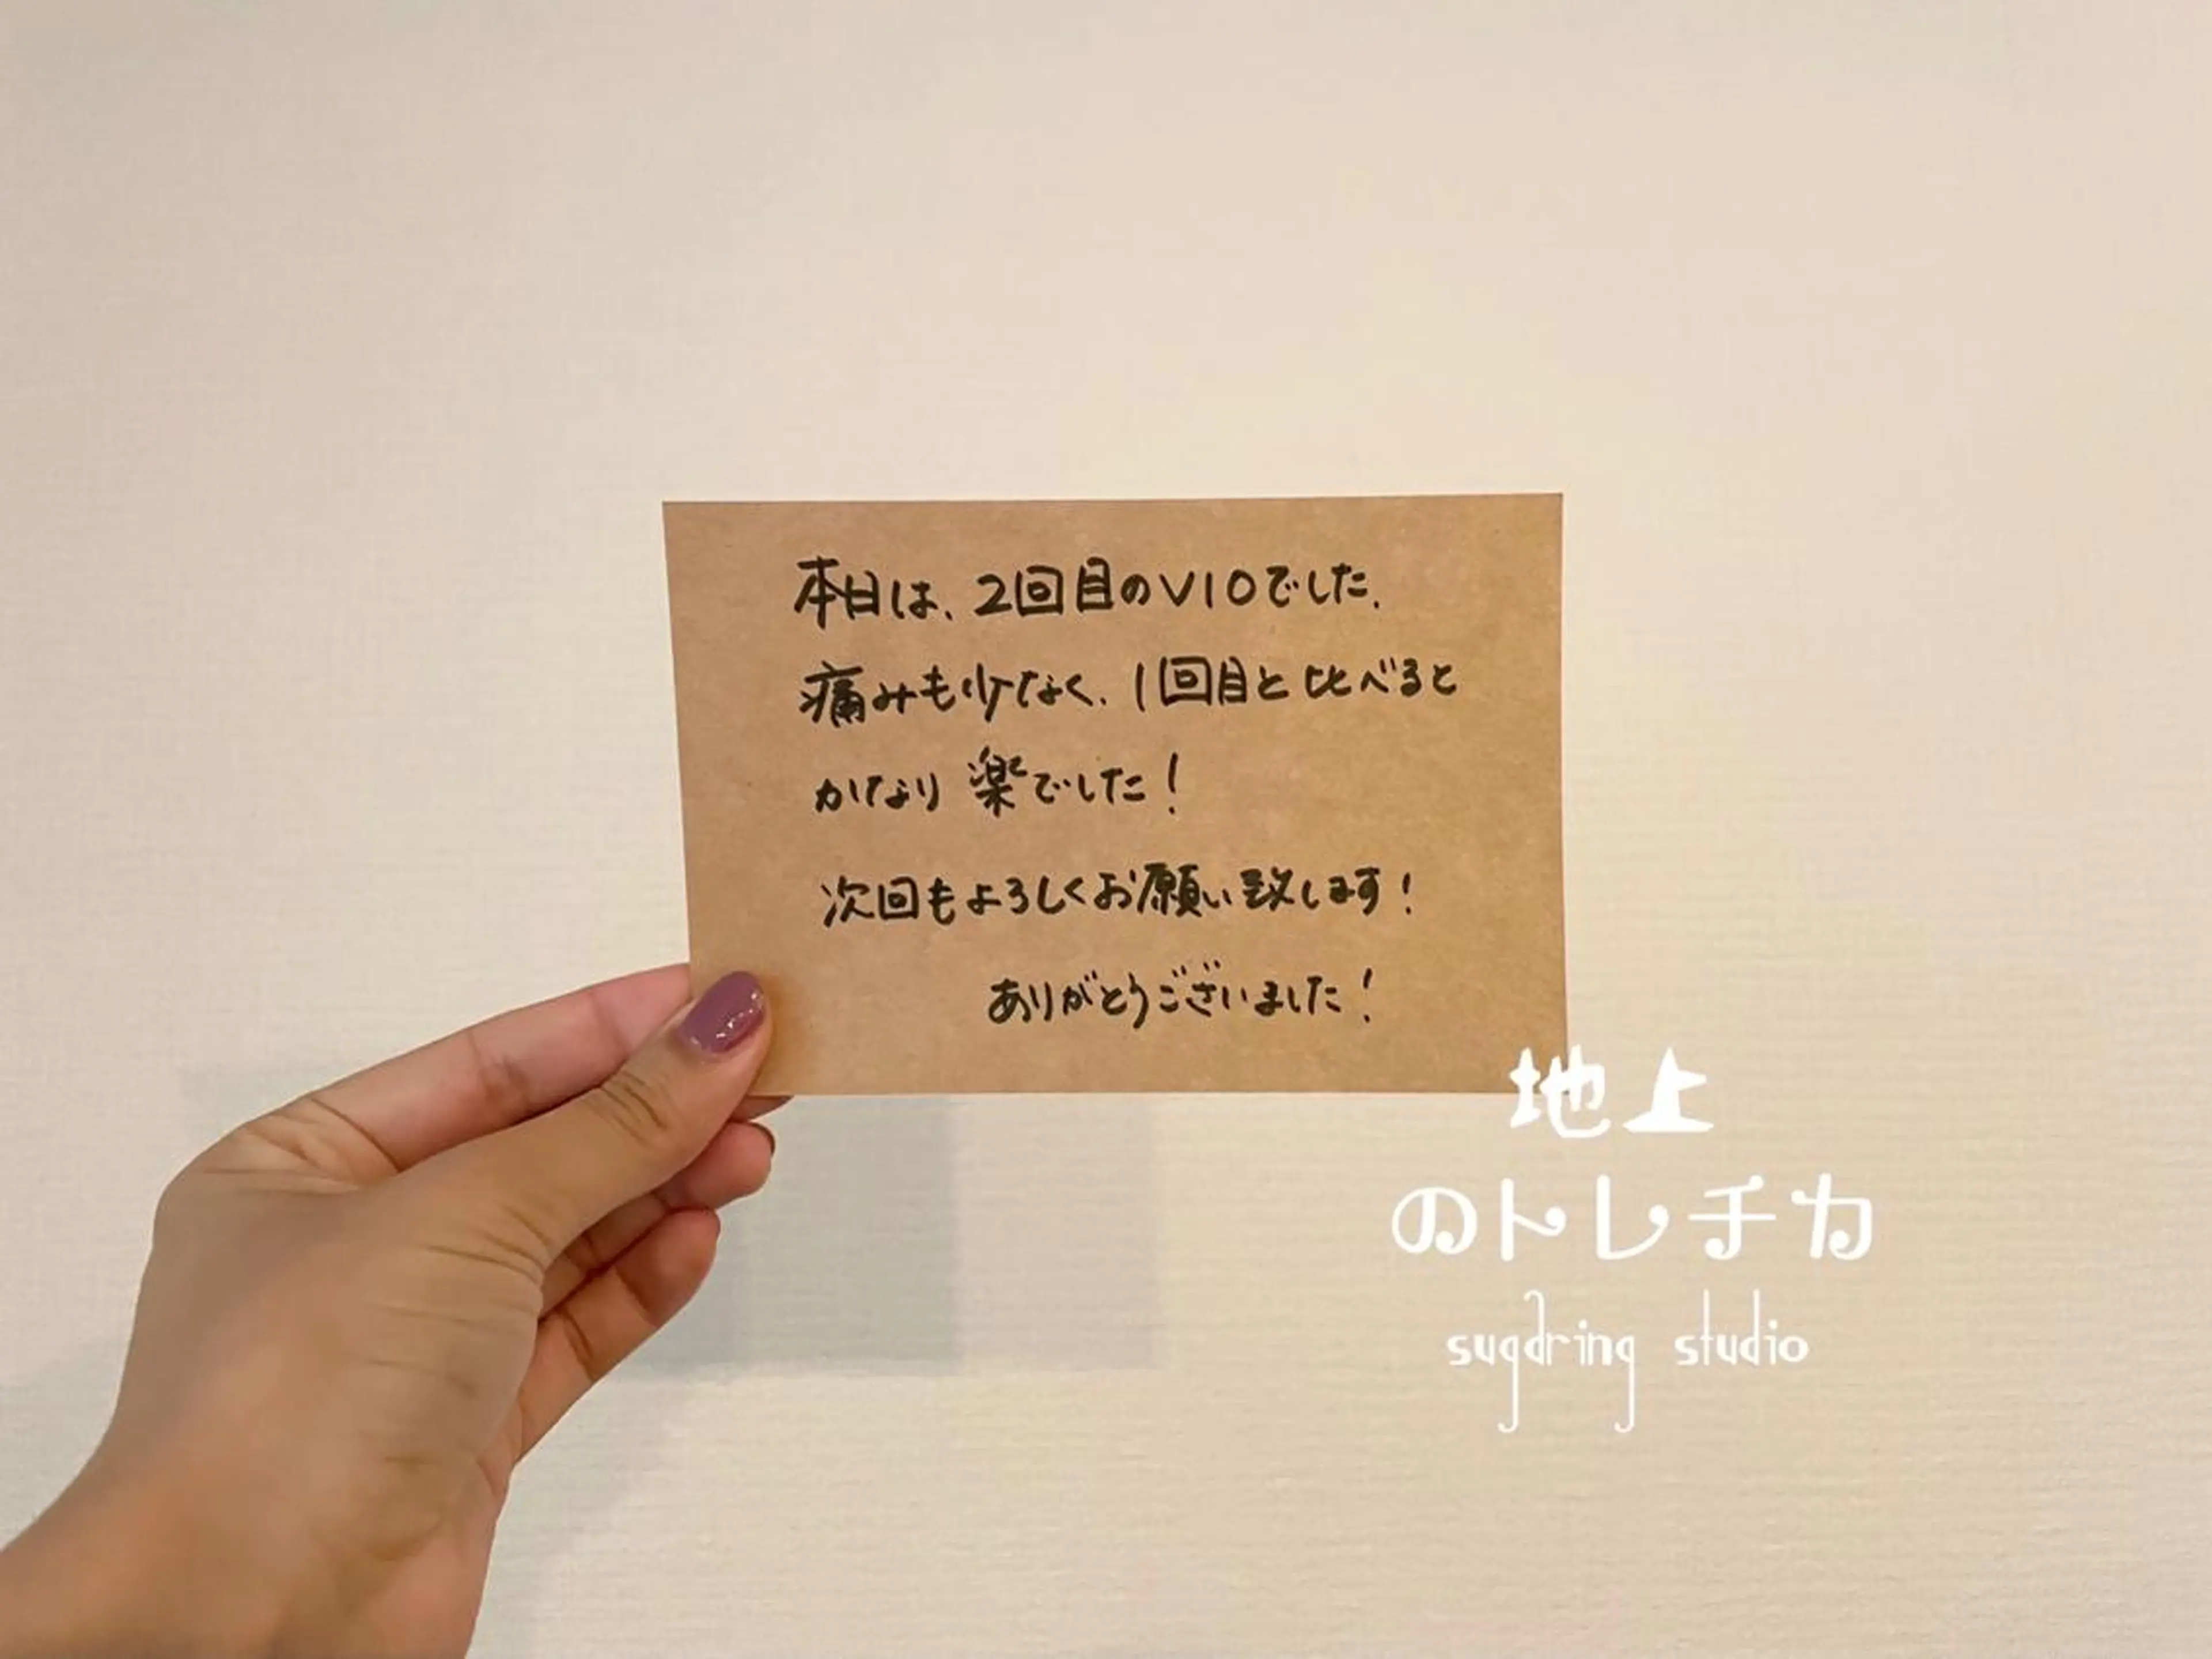 本日は、2回目のVIOでした。
痛みも少なく、1回目と比べると
かなり楽でした！
次回もよろしくお願い致します！
ありがとうございました！
地上
のトレチカ
sugdring studio